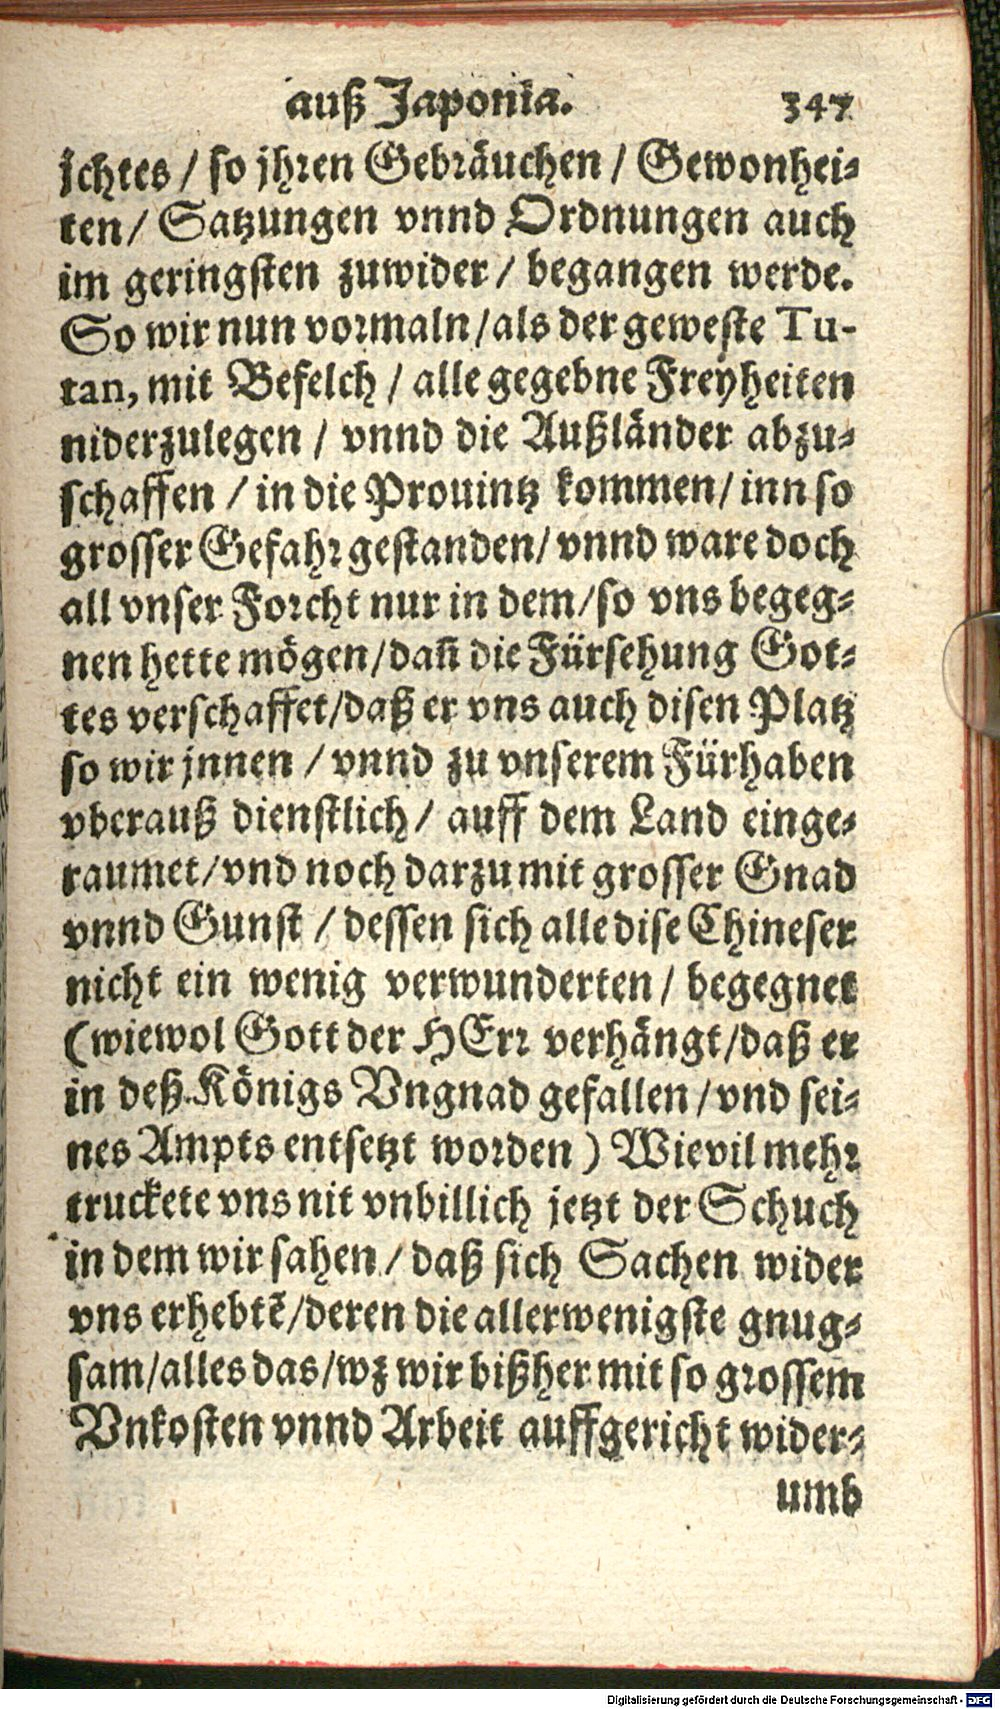 auß Japonia. 347
jchtes / so jhren Gebräuchen / Gewonhei-
ten / Satzungen vnnd Ordnungen auch
im geringsten zuwider / begangen werde.
So wir nun vormaln / als der geweste Tu-
tan, mit Befelch / alle gegebne Freyheiten
niderzulegen / vnnd die Außländer abzu-
schaffen / in die Prouintz kommen / inn so
grosser Gefahr gestanden / vnnd ware doch
all vnser Forcht nur in dem / so vns begeg-
nen hette mögen / dañ die Fürsehung Got-
tes verschaffet / daß er vns auch disen Platz
so wir jnnen / vnnd zu vnserem Fürhaben
vberauß dienstlich / auff dem Land einge-
raumet / vnd noch darzu mit grosser Gnad
vnnd Gunst / dessen sich alle dise Chineser
nicht ein wenig verwunderten / begegnet
(wiewol Gott der HErr verhängt / daß er
in deß Königs Vngnad gefallen / vnd sei-
nes Ampts entsetzt worden) Wievil mehr
truckete vns nit vnbillich jetzt der Schuch
in dem wir sahen / daß sich Sachen wider
vns erhebtẽ / deren die allerwenigste gnug-
sam / alles das / wz wir bißher mit so grossem
Vnkosten vnnd Arbeit auffgericht wider-
umb
Digitalisierung gefördert durch die Deutsche Forschungsgemeinschaft - DFG